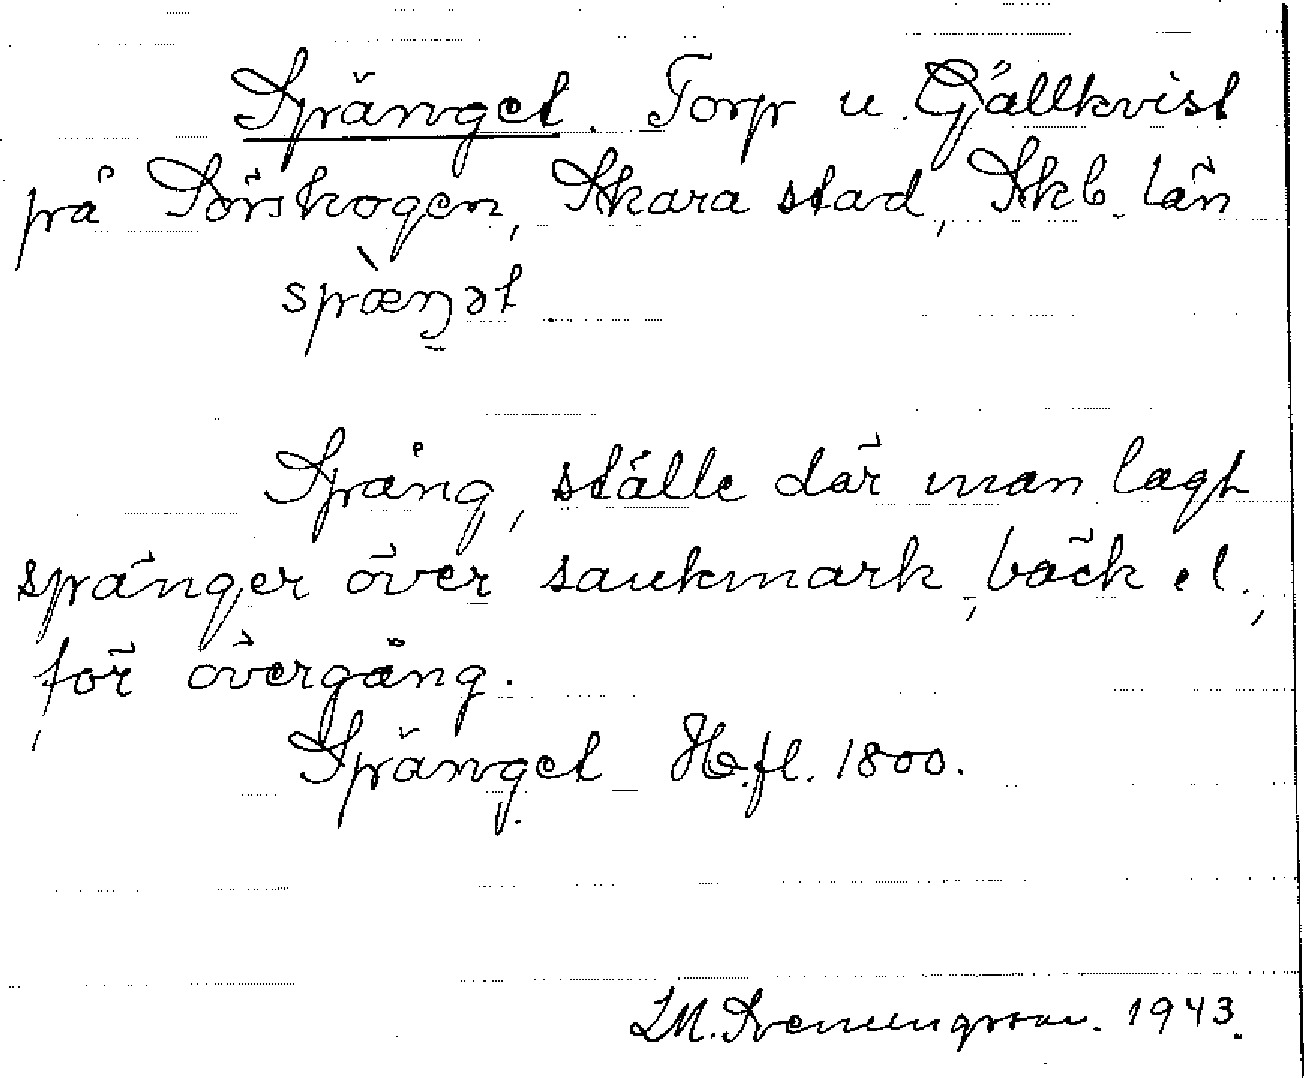 Spänget. Torp u. Gällkvist
på Sörskogen, Skara stad, Skb. län
spæŋət
Spång, ställe där man lagt
spänger över sankmark, bäck el.,
för övergång.
Spänget Hfl. 1800.
1943.